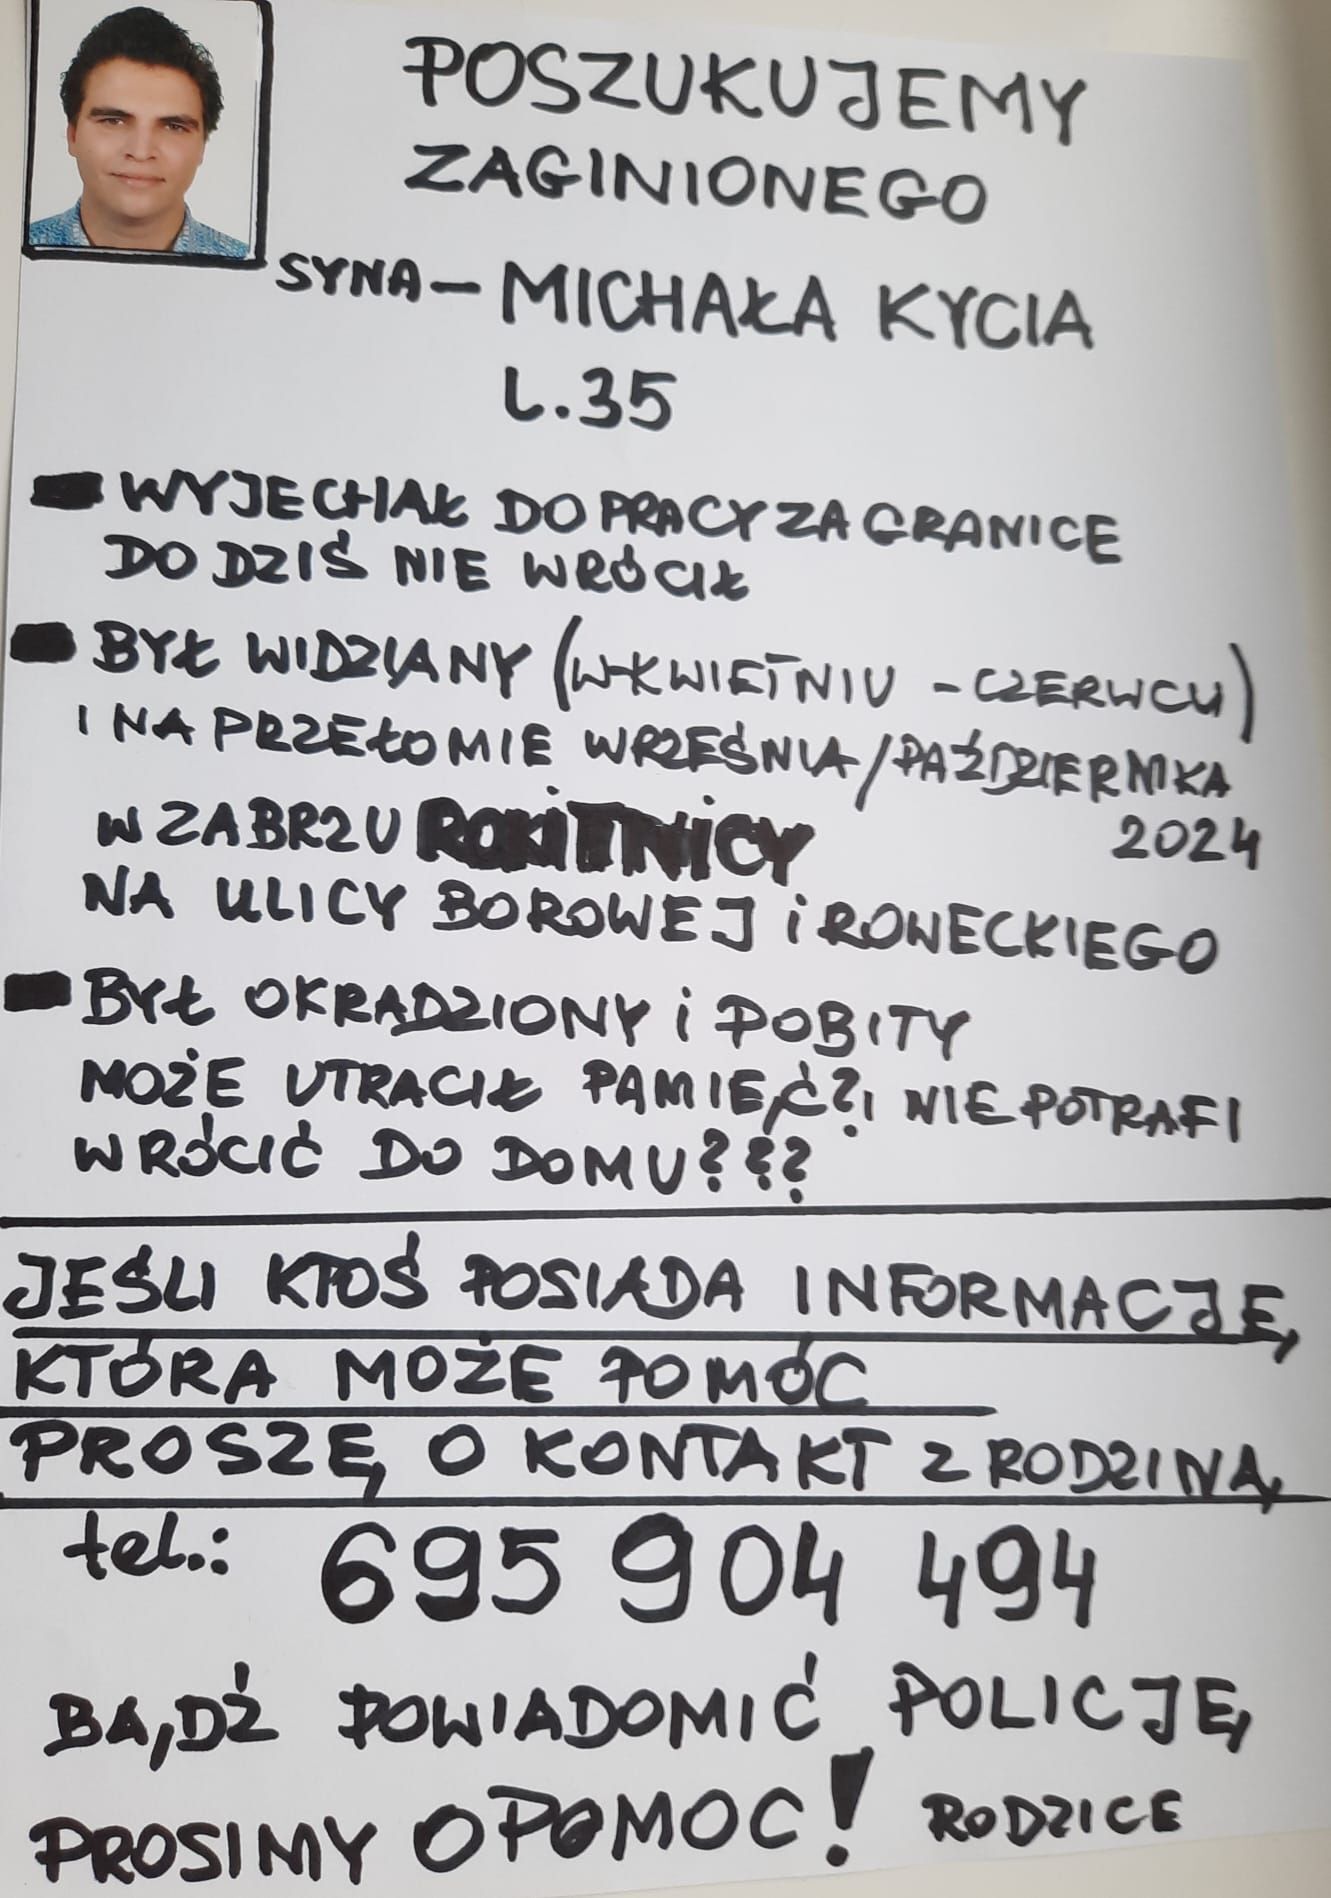 POSZUKUJEMY
ZAGINIONEGO
SYNA – MICHAŁA KYCIA
L.35
WYJECHAŁ DO PRACY ZA GRANICE
DO DZIŚ NIE WRÓCIŁ
BYŁ WIDZIANY (W KWIETNIU - CZERWCU)
I NA PRZEŁOMIE WRZEŚNIA/PAŹDZIERNIKA
2024
W ZABRZU ROKITNICY
NA ULICY BOROWEJ i ROWECKIEGO
BYŁ OKRADZIONY i POBITY
MOŻE UTRACIŁ PAMIĘĆ? I NIE POTRAFI
WRÓCIĆ DO DOMU???
JEŚLI KTOŚ POSIADA INFORMACJĘ,
KTÓRA MOŻE POMÓC
PROSZĘ O KONTAKT Z RODZINĄ
tel.: 695 904 494
BĄDŹ POWIADOMIĆ POLICJĘ
PROSIMY O POMOC! RODZICE